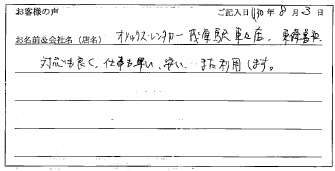 お客様の声 ご記入日 H30年 8月 3日
お名前&会社名(店名) オリックス・レンタカー 茂原駅前店
対応も良く、仕事も早い、安い、また利用します。